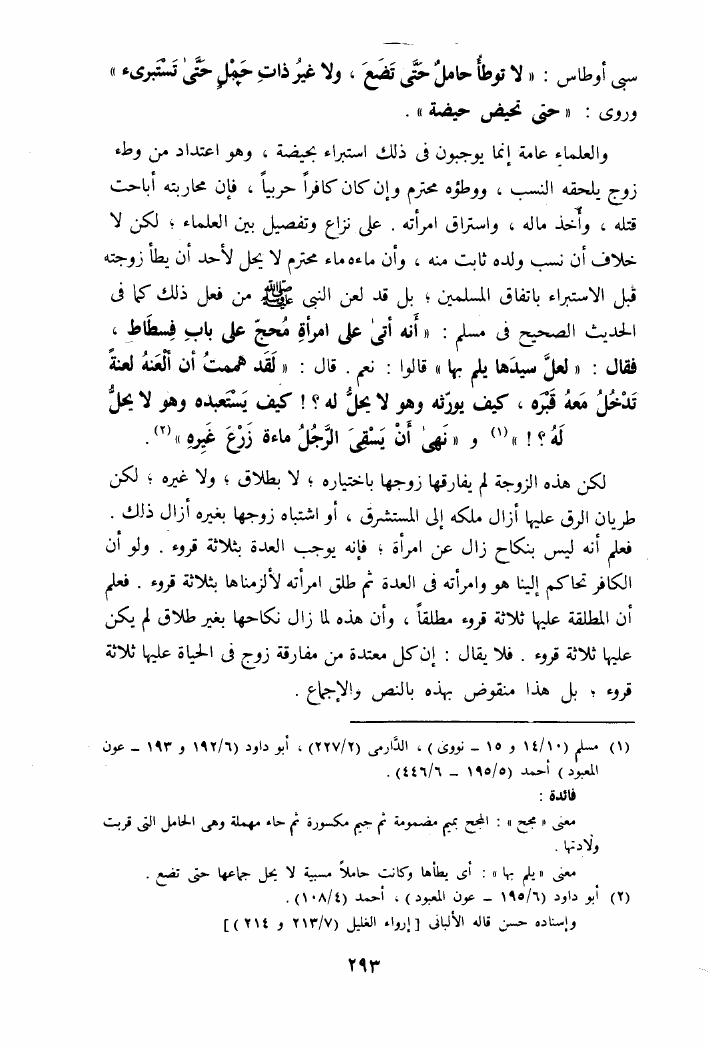 سبى أوطاس : « لا توطأُ حاملٌ حَتَّى تَضَعَ ، ولا غيرُ ذاتِ حَمْلٍ حَتَّىٰ تَسْتبرىء »
وروى : « حتى تحيض حيضة » .
والعلماء عامة إنما يوجبون فى ذلك استبراء بحيضة ، وهو اعتداد من وطء
زوج يلحقه النسب ، ووطؤه محترم وإن كان كافراً حربياً ، فإن محاربته أباحت
قتله ، وأخذ ماله ، واسترقاق امرأته . على نزاع وتفصيل بين العلماء ؛ لكن لا
خلاف أن نسب ولده ثابت منه ، وأن ماءه ماء محترم لا يحل لأحد أن يطأ زوجته
قبل الاستبراء باتفاق المسلمين ؛ بل قد لعن النبي ﷺ من فعل ذلك كما فى
الحديث الصحيح فى مسلم : « أَنه أتىٰ على امرأةٍ مُحجّ على بابِ فِسطَاط ،
فقال : « لعلَّ سيدَها يلم بها » قالوا : نعم . قال : « لَقَد هممتُ أن ألْعَنَهُ لعنةً
تَدْخُلُ مَعهُ قَبْرَه ، كيف يورّثه وهو لا يحلُّ له ؟ ! كيف يَسْتَعبده وهو لا يحلُّ
لَهُ ؟ ! » (١) و « نَهىٰ أَنْ يَسْقِىَ الرَّجُلُ ماءهَ زَرْعَ غَيرِهِ » (٢) .
لكن هذه الزوجة لم يفارقها زوجها باختياره ؛ لا بطلاق ؛ ولا غيره ؛ لكن
طريان الرق عليها أزال ملكه إلى المسترق ، أو اشتباه زوجها بغيره أزال ذلك .
فعلم أنه ليس بنكاح زال عن امرأة ؛ فإنه يوجب العدة بثلاثة قروء . ولو أن
الكافر تحاكم إلينا هو وامرأته فى العدة ثم طلق امرأته لألزمناها بثلاثة قروء . فعلم
أن المطلقة عليها ثلاثة قروء مطلقاً ، وأن هذه لما زال نكاحها بغير طلاق لم يكن
عليها ثلاثة قروء . فلا يقال : إن كل معتدة من مفارقة زوج فى الحياة عليها ثلاثة
قروء ؛ بل هذا منقوض بهذه بالنص والإجماع .
(١) مسلم (١٤/١٠ و ١٥ – نووى) ، الدَّارمى (٢٢٧/٢) ، أبو داود (١٩٢/٦ و ١٩٣ – عون
المعبود) أحمد (١٩٥/٥ – ٤٤٦/٦) .
فائدة :
معنى « مجح » : المجح بميم مضمومة ثم جيم مكسورة ثم حاء مهملة وهى الحامل التى قربت
ولادتها .
معنى « يلم بها » : أى يطأها وكانت حاملاً مسبية لا يحل جماعها حتى تضع .
(٢) أبو داود (١٩٥/٦ – عون المعبود) ، أحمد (١٠٨/٤) .
وإسناده حسن قاله الألبانى [إرواء الغليل (٢١٣/٧ و ٢١٤)]
٢٩٣